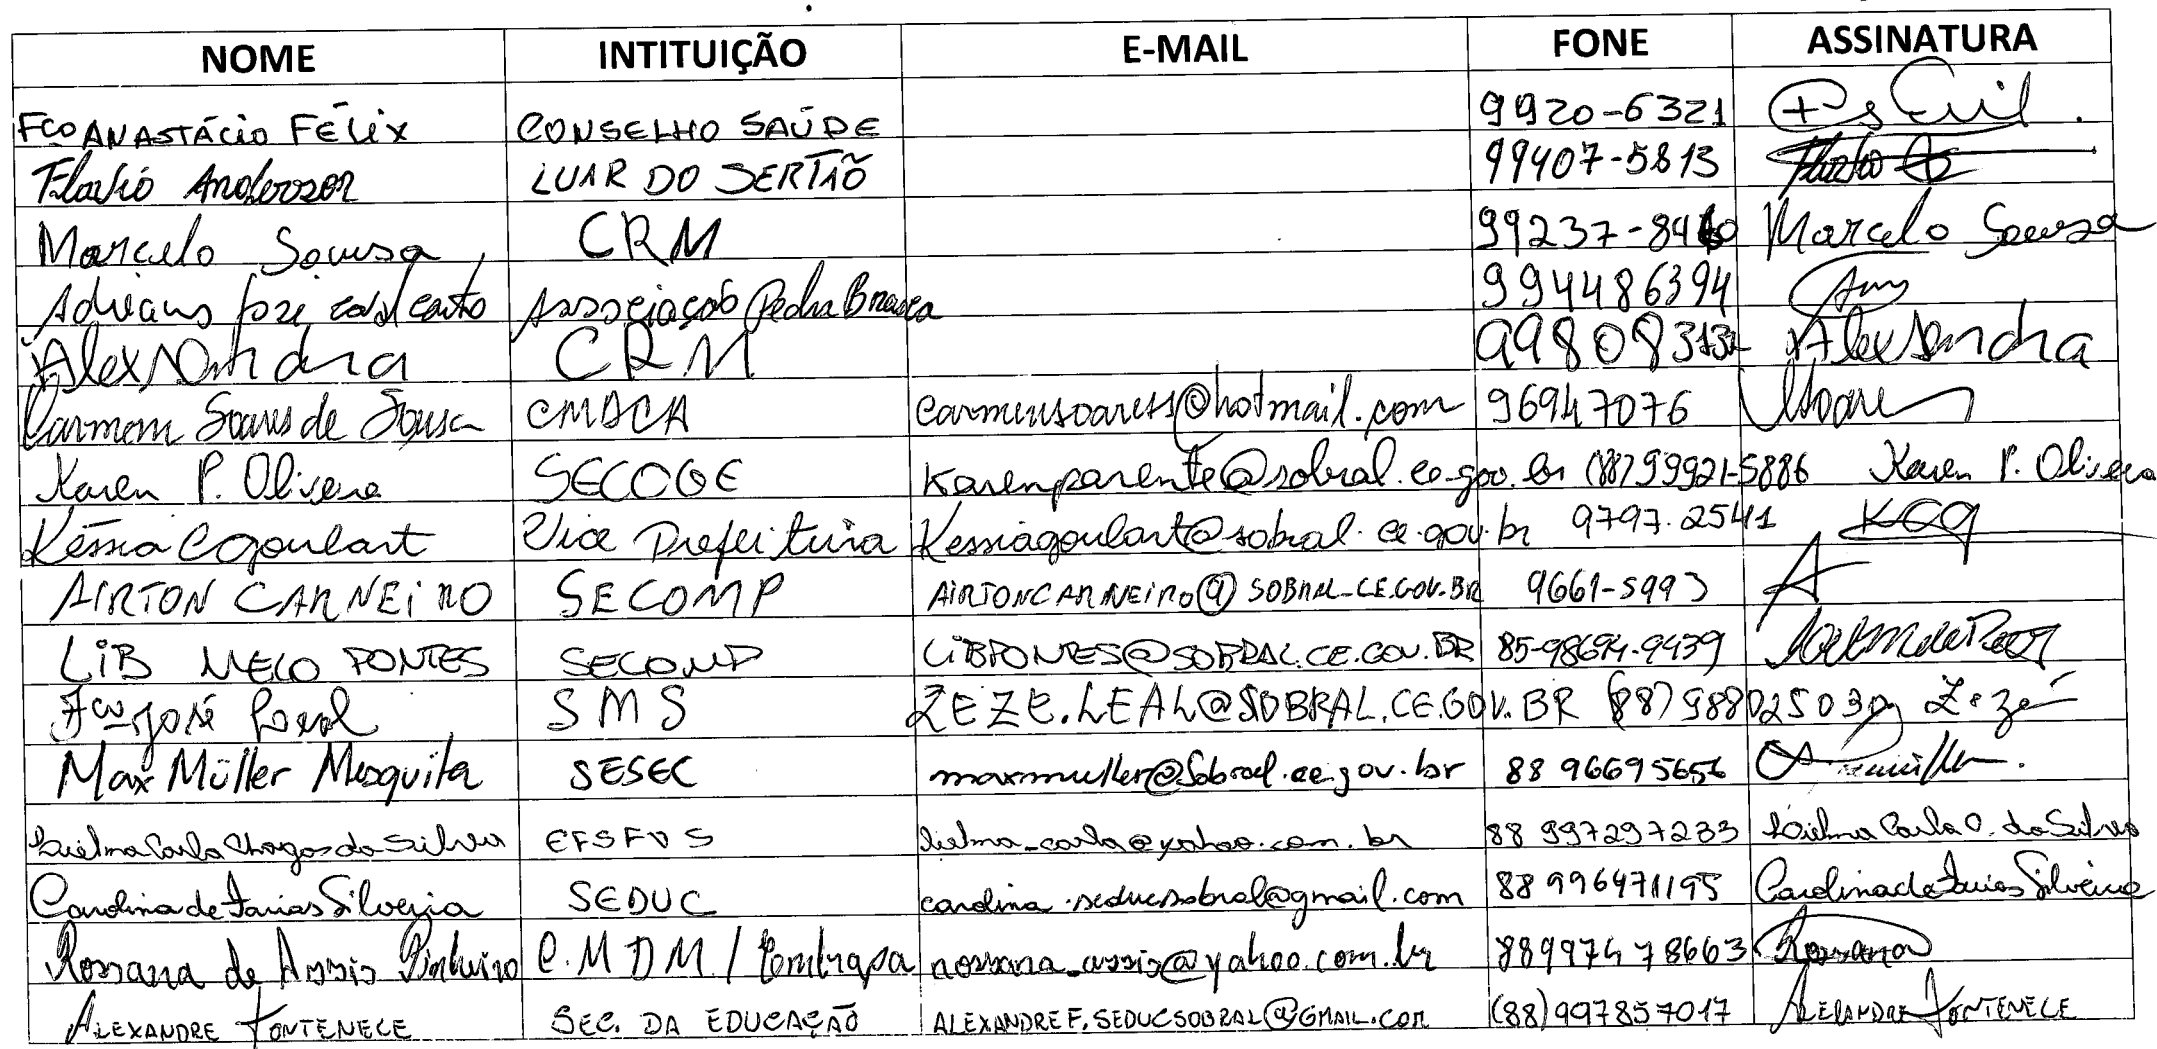 NOME INTITUIÇÃO E-MAIL FONE ASSINATURA
Fco ANASTÁCIO FÉLIX CONSELHO SAÚDE 9920-6321
Flavio Anderson LUAR DO SERTÃO 99407-5813
Marcelo Sousa CRM 99237- Marcelo Sousa
Adriano José Associação Pedra Branca 994486394
Alexsandra CRM Alexsandra
Carmem Soares de Sousa CMDCA 96947076
Karen P. Olivera SECOGE Karenparente@sobral.ce.gov.br (88)99921-5886 Karen P. Olivera
Késsia C Goulart Vice Prefeitura Kessiagoulart@sobral.ce.gov.br 9797.2541 KCG
AIRTON CARNEIRO SECOMP AIRTONCARNEIRO@SOBRAL.CE.GOV.BR 9661-5993 A
LIB MELO PONTES SECOMP LIBPONTES@SOBRAL.CE.GOV.BR 85-98694-9439
Fco José Leal SMS ZEZE.LEAL@SOBRAL.CE.GOV.BR (88) Zezé
Max Müller Mesquita SESEC maxmuller@Sobral.ce.gov.br 88 96695656
Carla Chagas da Silva EFSFVS 88 997297233 Carla C. da Silva
Carolina de Farias Silveira SEDUC carolina.seducsobral@gmail.com 88 996471195 Carolina de Farias Silveira
Rossana de Assis Pinheiro C.MDM / Embrapa rossana_assis@yahoo.com.br 88997478663 Rossana
ALEXANDRE FONTENELE SEC. DA EDUCAÇÃO ALEXANDREF.SEDUCSOBRAL@GMAIL.COM (88)997857017 ALEXANDRE FONTENELE